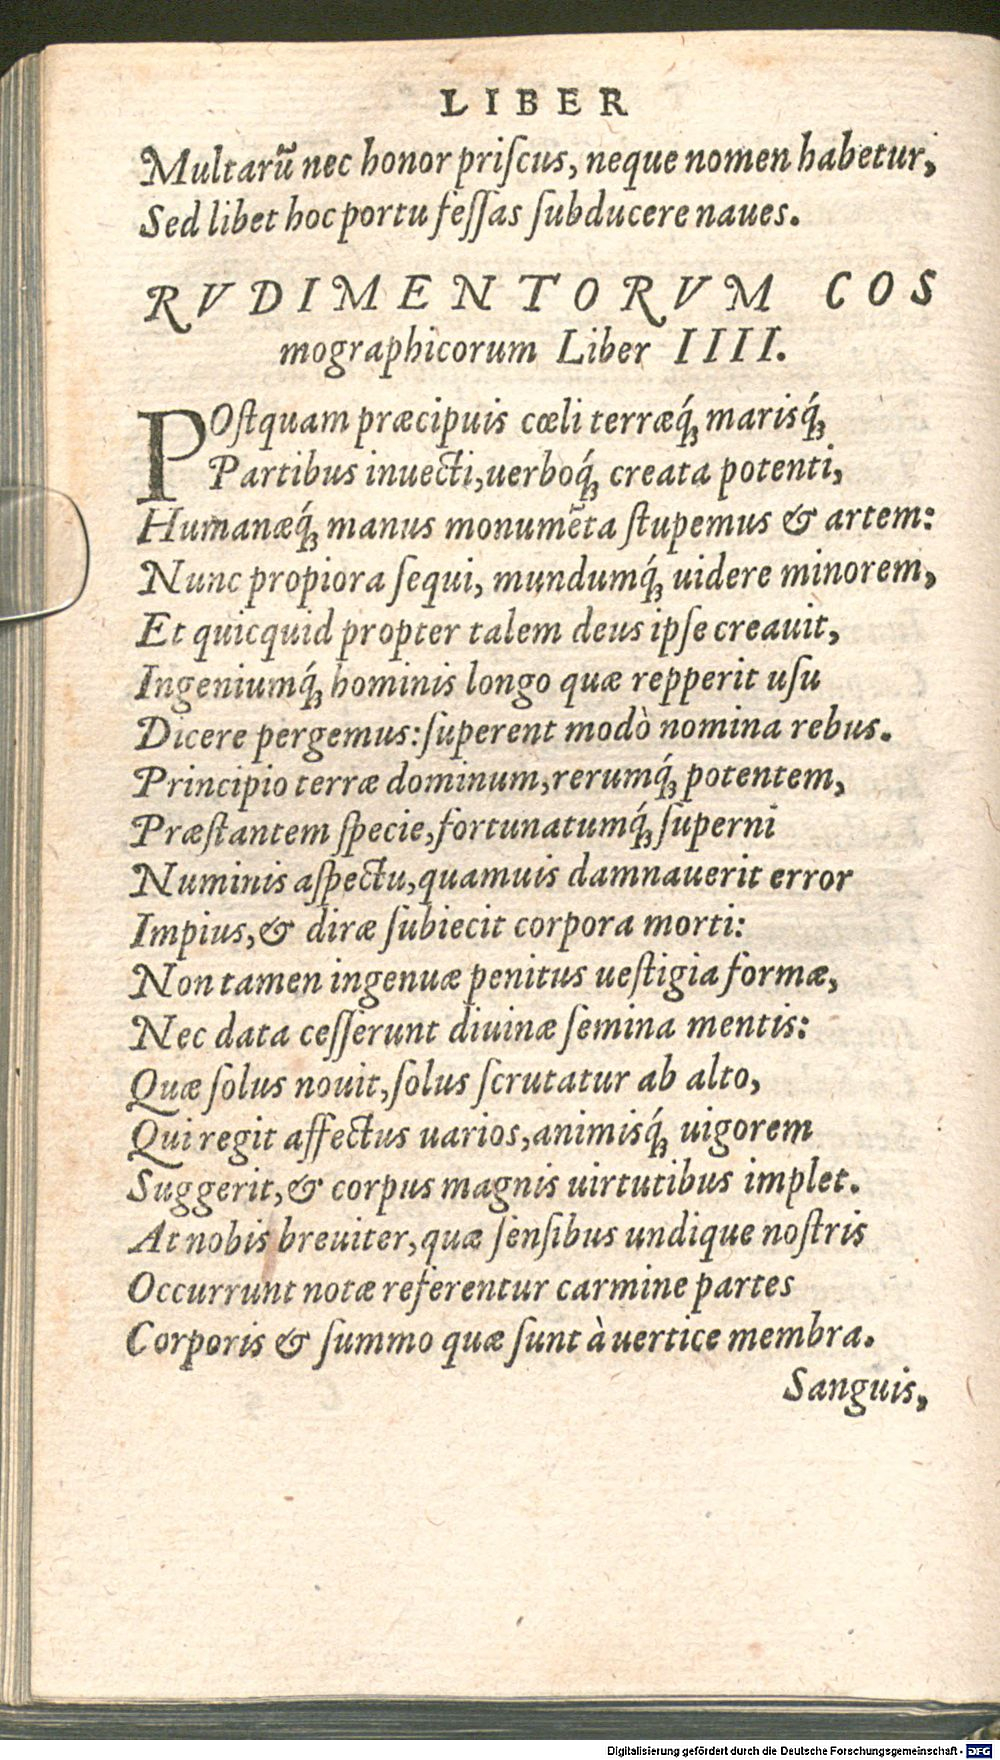 LIBER
Multarũ nec honor priſcus, neque nomen habetur,
Sed libet hoc portu feſſas ſubducere naues.
RVDIMENTORVM COS
mographicorum Liber IIII.
POſtquam præcipuis cœli terræq́; marisq́;
Partibus inuecti, uerboq́; creata potenti,
Humanæq́; manus monumẽta ſtupemus & artem:
Nunc propiora ſequi, mundumq́; uidere minorem,
Et quicquid propter talem deus ipſe creauit,
Ingeniumq́; hominis longo quæ repperit uſu
Dicere pergemus: ſuperent modò nomina rebus.
Principio terræ dominum, rerumq́; potentem,
Præſtantem ſpecie, fortunatumq́; ſuperni
Numinis aſpectu, quamuis damnauerit error
Impius, & diræ ſubiecit corpora morti:
Non tamen ingenuæ penitus ueſtigia formæ,
Nec data ceſſerunt diuinæ ſemina mentis:
Quæ ſolus nouit, ſolus ſcrutatur ab alto,
Qui regit affectus uarios, animisq́; uigorem
Suggerit, & corpus magnis uirtutibus implet.
At nobis breuiter, quæ ſenſibus undique noſtris
Occurrunt notæ referentur carmine partes
Corporis & ſummo quæ ſunt à uertice membra.
Sanguis,
Digitalisierung gefördert durch die Deutsche Forschungsgemeinschaft - DFG